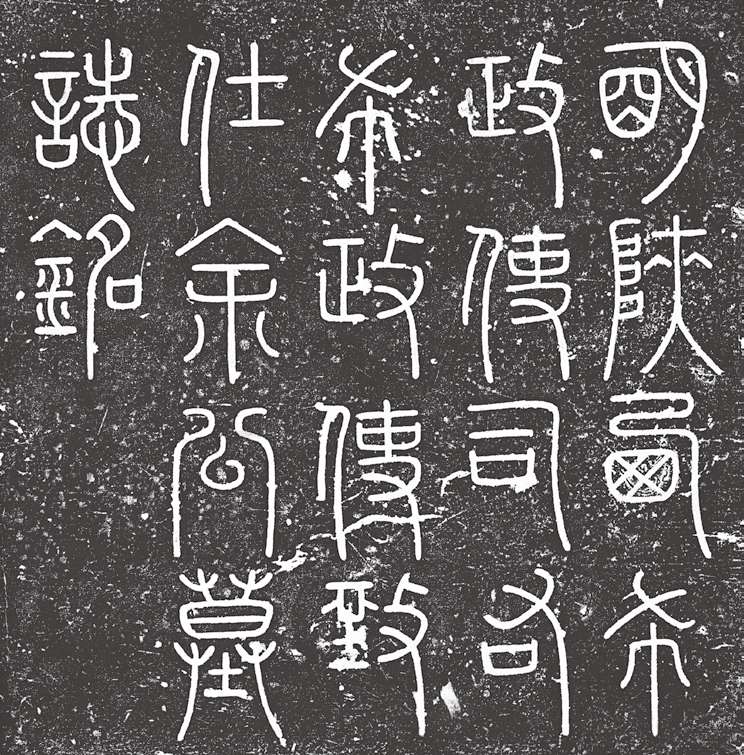 明陝西布
政使司右
布政使致
仕余公墓
誌銘